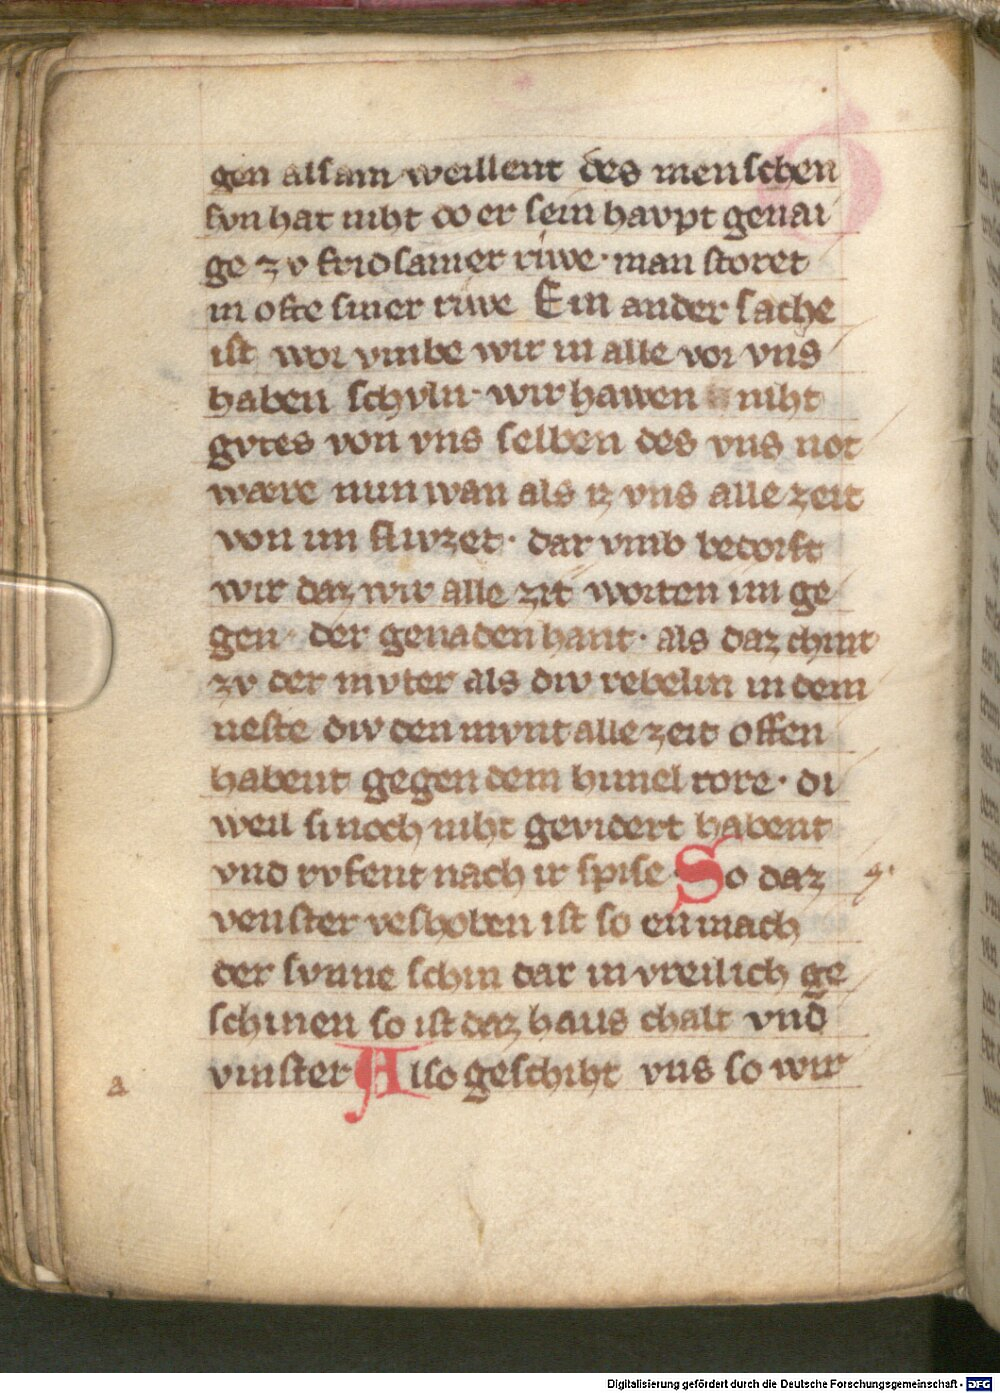 gen alsam weillent des menschen
svn hat niht do er sein havpt genai
ge zv fridsamer riwe · man storet
in ofte siner riwe Ein ander sache
ist wor vmbe wir in alle vor vns
haben schvln · wir hawen niht
gvtes von vns selben des vns not
wære nun wan als iz vns alle zeit
von im fliwzet · dar vmb bedorft
wir daz wir alle zit worten im ge
gen · der genaden hant · als daz chint
zv der mvter als div rebelin in dem
neste div den mvnt alle zeit offen
habent gegen dem himel rore · di
weil si noch niht gevidert habent
vnd rvfent nach ir spise So daz
venster veshoben ist so en mach
der svnne schin dar in vreilich ge
schinen so ist daz haus chalt vnd̄
vinster Also geschiht vns so wir
a
Digitalisierung gefördert durch die Deutsche Forschungsgemeinschaft - DFG